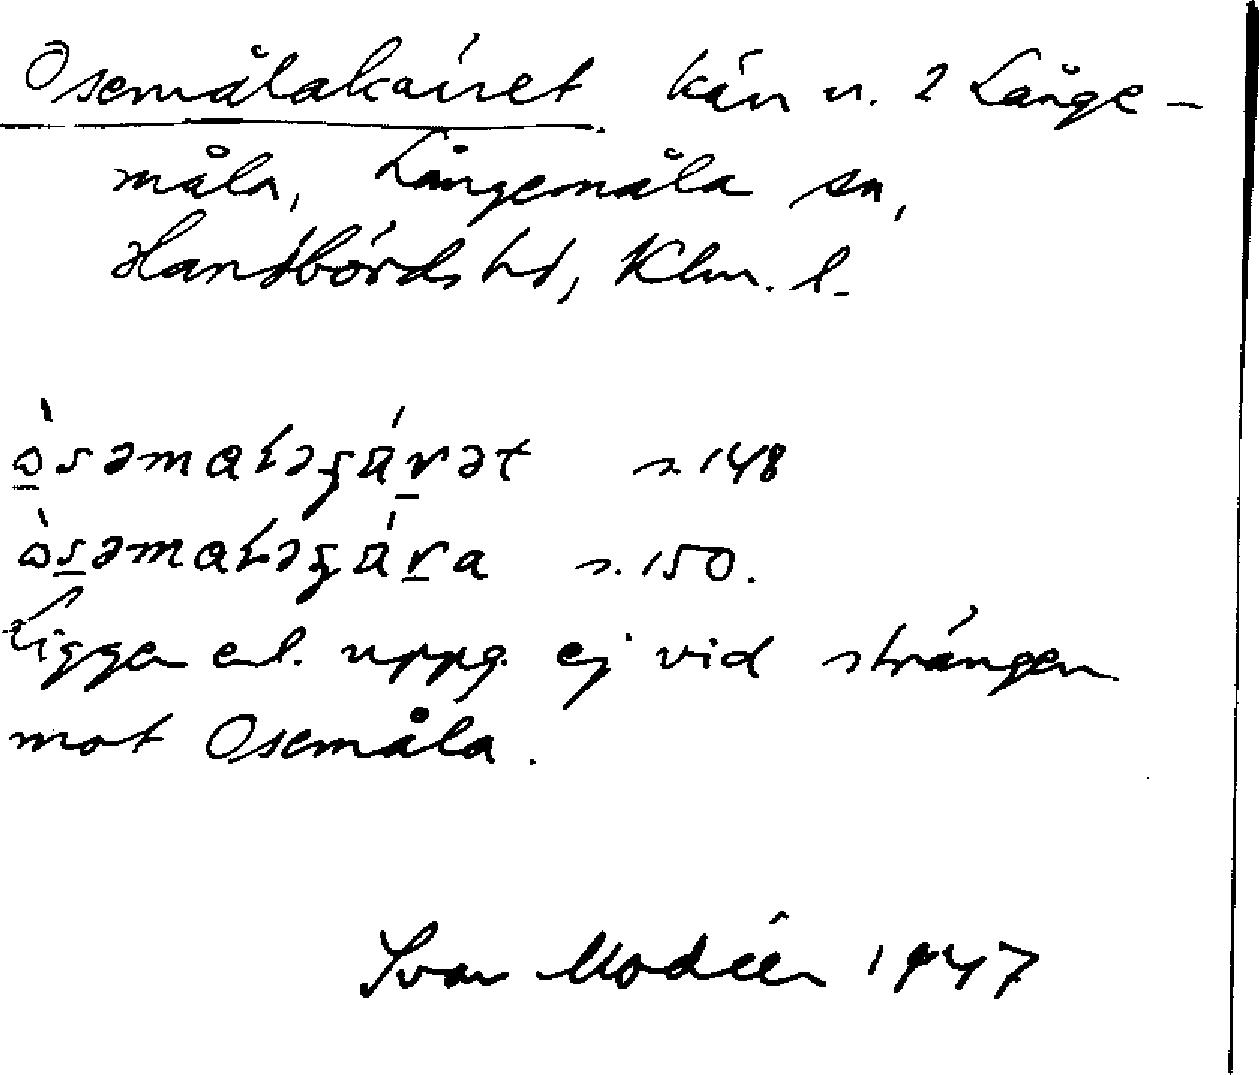 Osemålakärret kärr n. 2 Långe-
måla, Långemåla sn,
Handbörds hd, Klm. l.
òsəmaləʂárət s. 148
òsəmaləʂára s. 150.
Ligger enl. uppg. ej vid strängen
mot Osemåla.
Ivar Modéer 1947